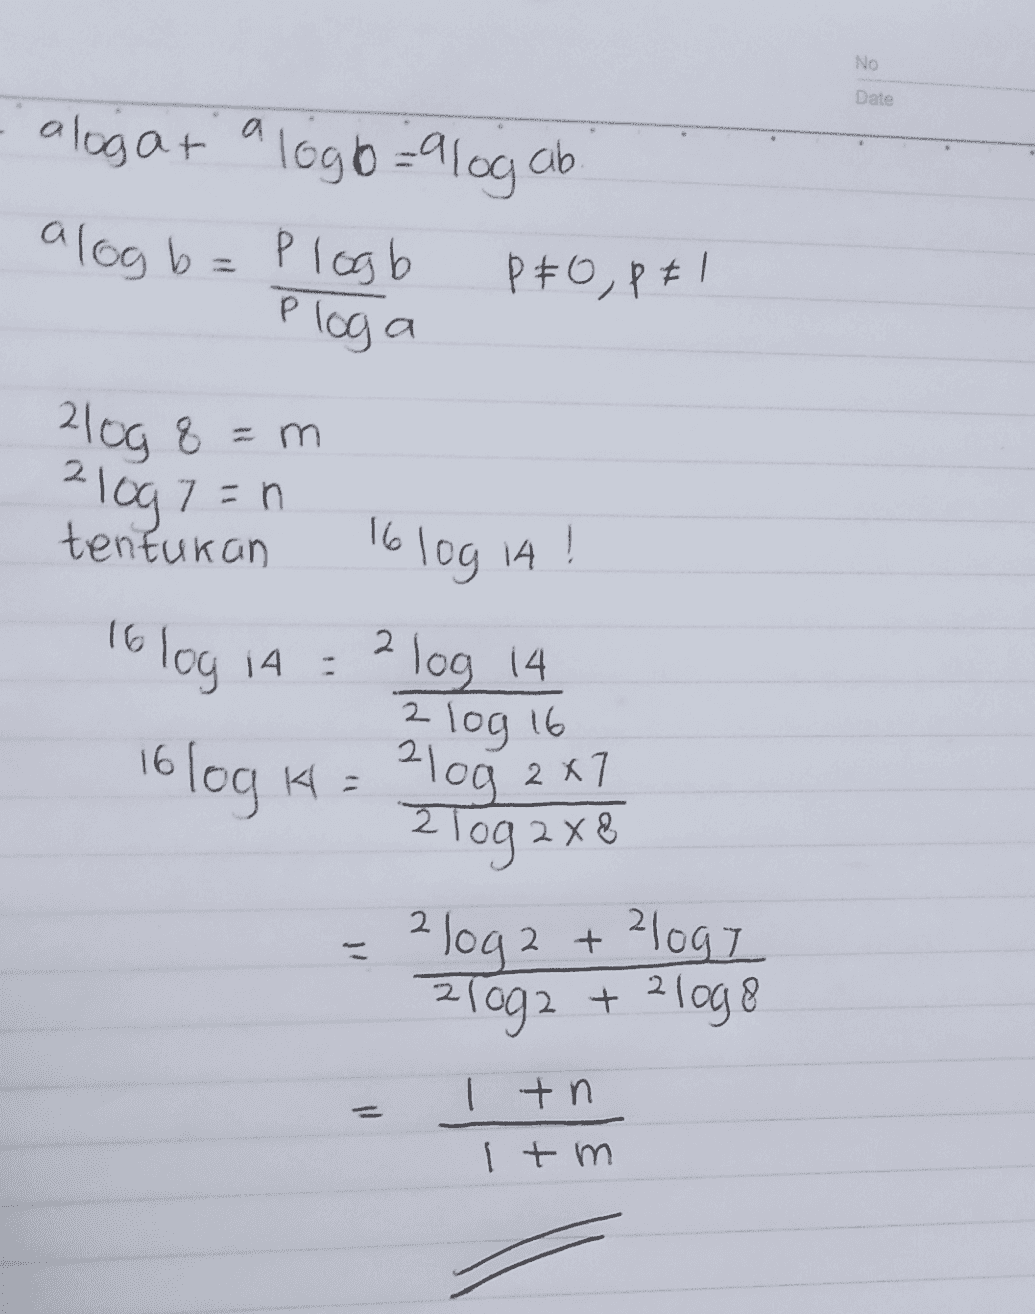 No
Date
ᵃlog a + ᵃlog b = ᵃlog ab
ᵃlog b = ᴾlog b / ᴾlog a   P ≠ 0, P ≠ 1
²log 8 = m
²log 7 = n
tentukan ¹⁶log 14 !
¹⁶log 14 = ²log 14 / ²log 16
¹⁶log 14 = ²log 2 x 7 / ²log 2 x 8
= ²log 2 + ²log 7 / ²log 2 + ²log 8
= 1 + n / 1 + m